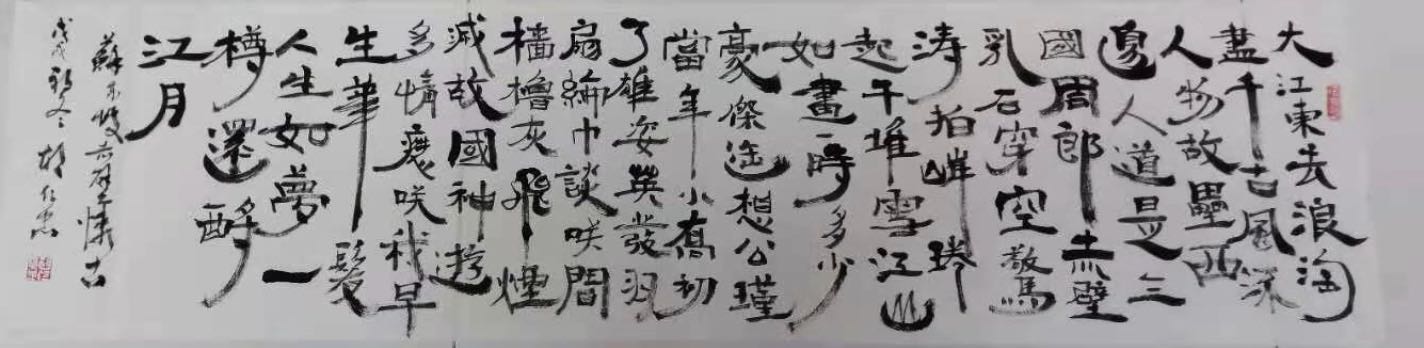 大江東去浪淘
盡千古風流
人物故壘西
邊人道是三
國周郎赤壁
乱石穿空驚
涛拍岸捲
起千堆雪江山
如畫一時多少
豪傑遥想公瑾
當年小喬初
了雄姿英發羽
扇綸巾談咲間
檣櫓灰飛煙
滅故國神遊
多情應咲我早
生華髮
人生如夢一
樽還酹
江月
蘇东坡赤壁懷古
戊戌初冬